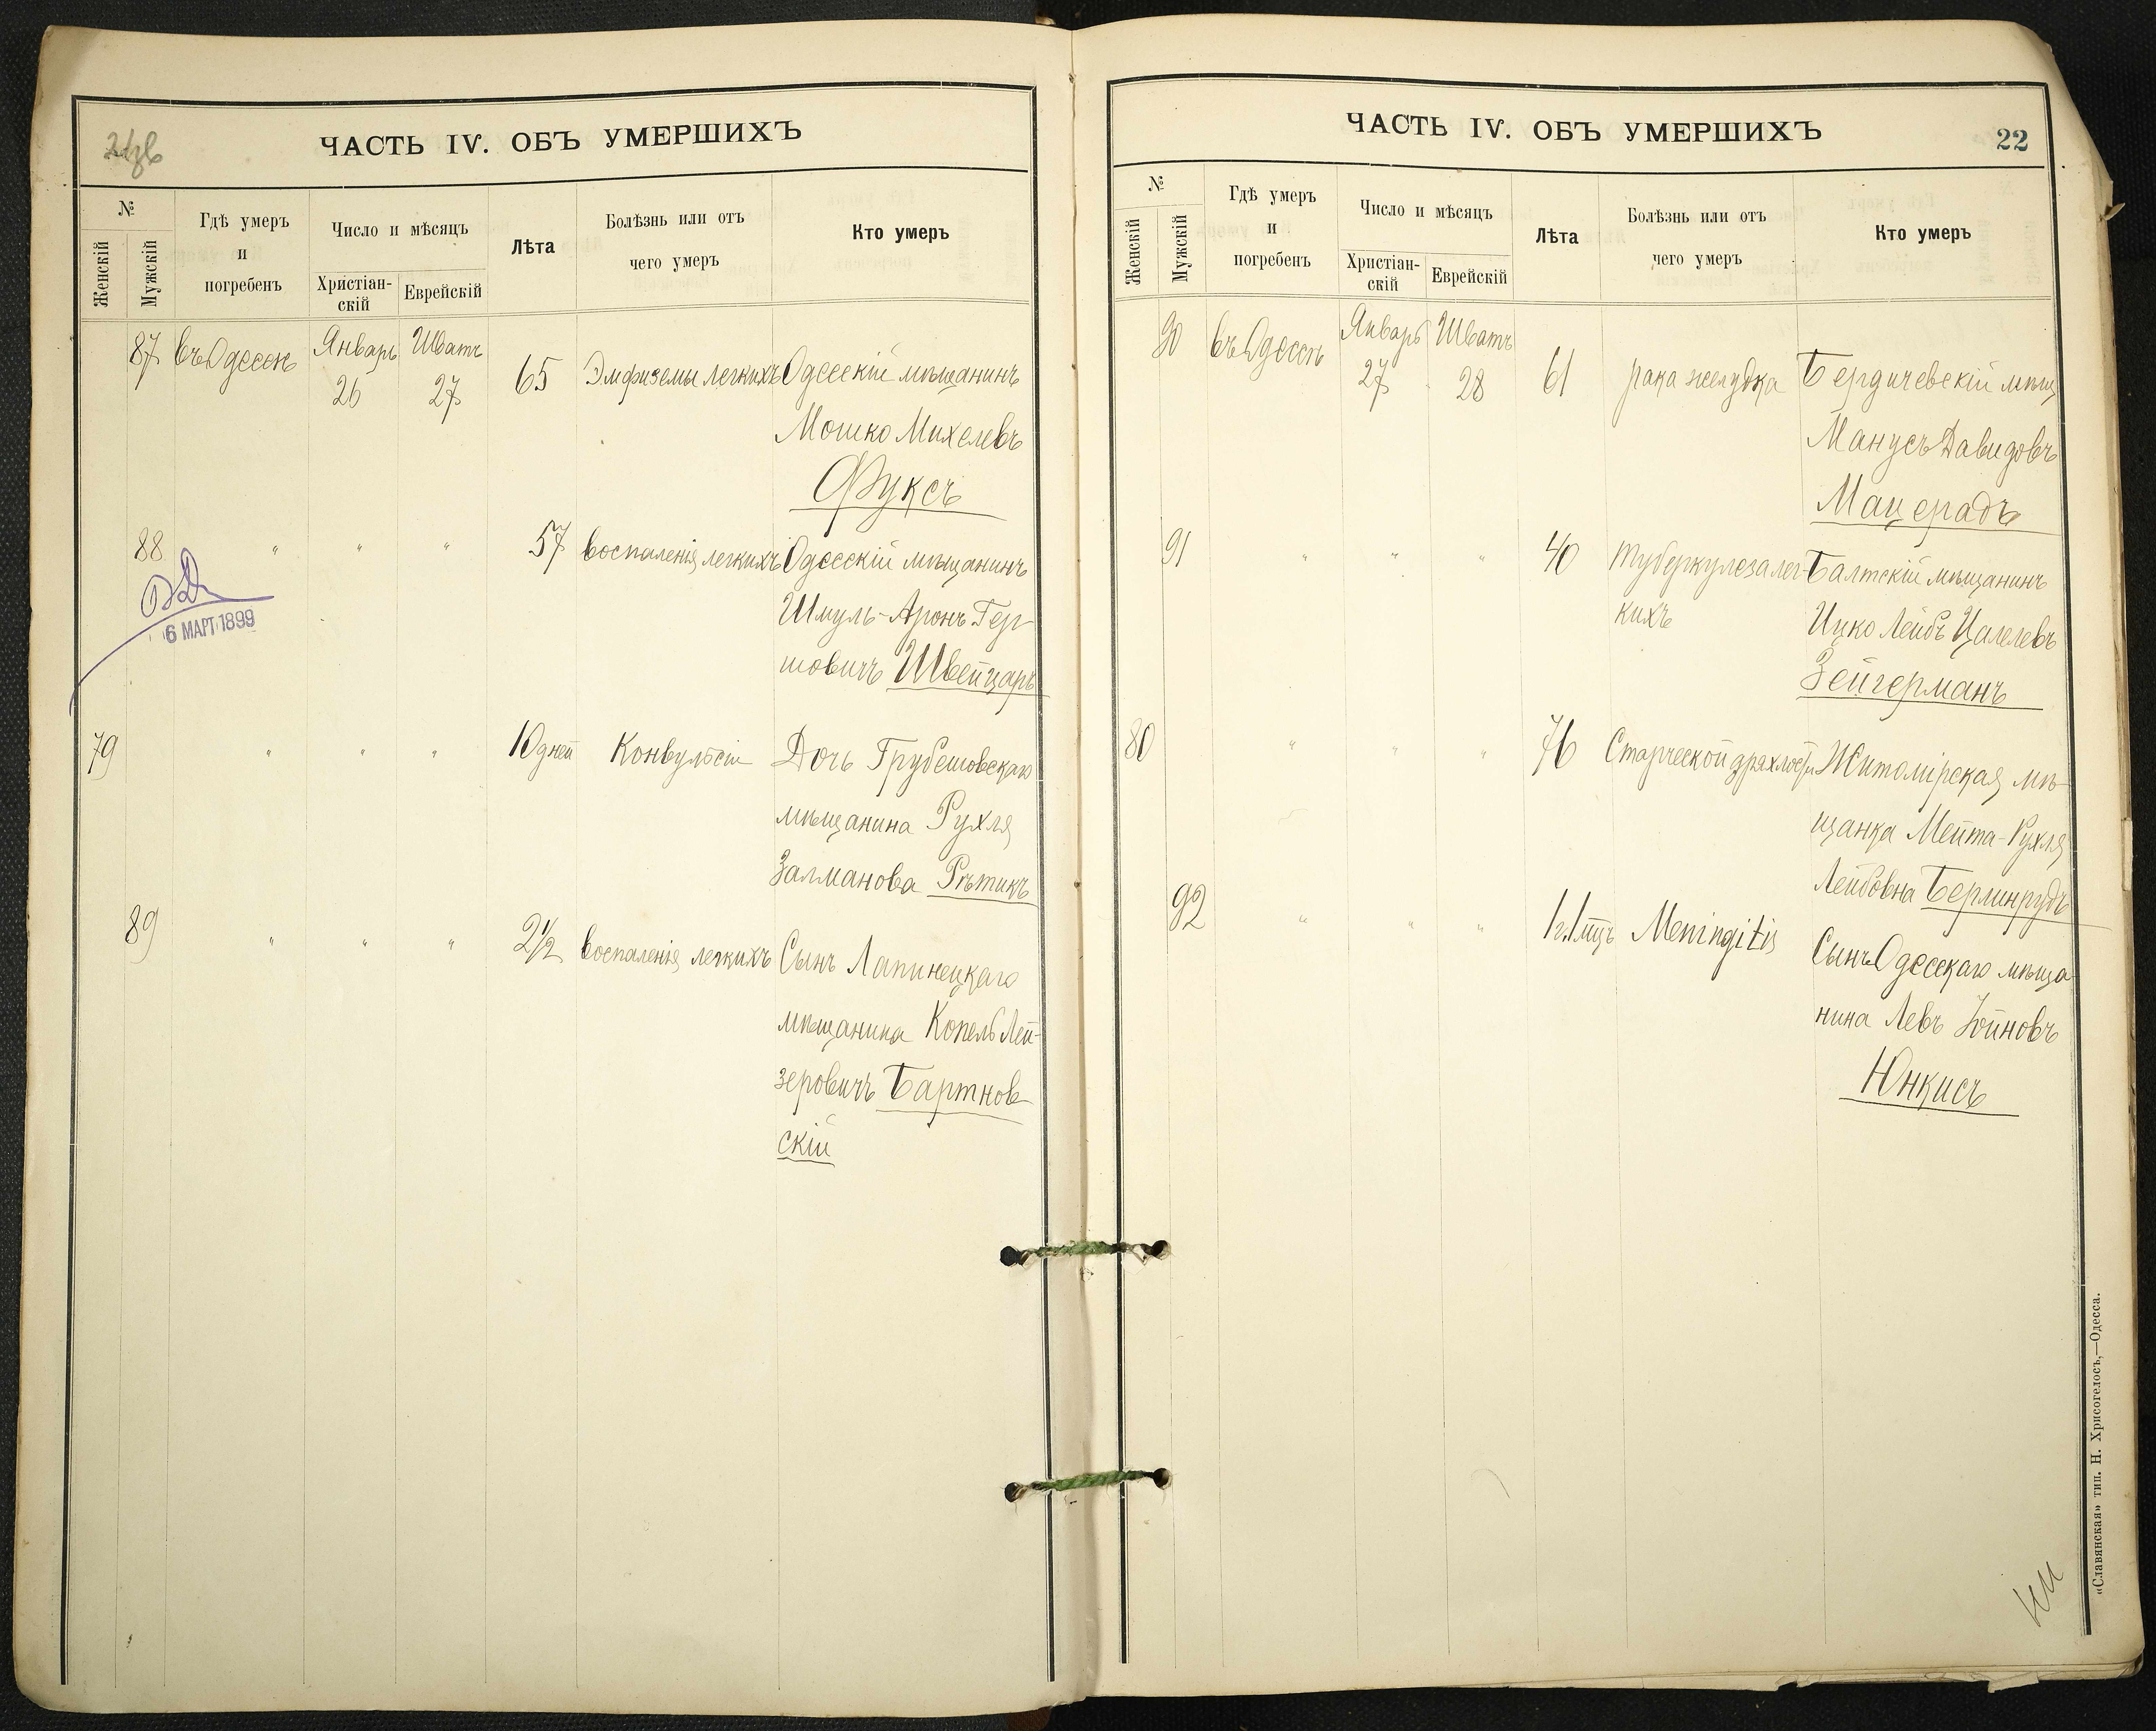 ЧАСТЬ IV. ОБЪ УМЕРШИХЪ
№
Женскій
Мужскій
Гдѣ умеръ
и
погребенъ
Число и мѣсяцъ
Христіан-
скій
Еврейскій
Лѣта
Болѣзнь или отъ
чего умеръ
Кто умеръ
87 въ Одессѣ Январь 26 Шватъ 27 65 Эмфиземы легкихъ Одесскій мѣщанинъ
Мошко Михелевъ
Фуксъ
88 " " " 57 воспаленія легкихъ Одесскій мѣщанинъ
Шмуль-Аронъ Гер-
шовичъ Швейцаръ
6 МАРТ 1899
79 " " " 10 дней Конвульсіи Дочь Грубешовскаго
мѣщанина Рухля
Залманова Рѣтикъ
89 " " " 2½ воспаленія легкихъ Сынъ Лапинецкаго
мѣщанина Копель Лей-
зеровичъ Бартнов-
скій
ЧАСТЬ IV. ОБЪ УМЕРШИХЪ
22
№
Женскій
Мужскій
Гдѣ умеръ
и
погребенъ
Число и мѣсяцъ
Христіан-
скій
Еврейскій
Лѣта
Болѣзнь или отъ
чего умеръ
Кто умеръ
90 въ Одессѣ Январь 27 Шватъ 28 61 рака желудка Бердичевскій мѣщ
Манусъ Давидовъ
Мацерадъ
91 " " " 40 туберкулеза лег- Балтскій мѣщанинъ
кихъ Ицко Лейбъ Цалелевъ
Зейгерманъ
80 " " " 76 Старческой дряхлости Житомірская мѣ-
щанка Мейта-Рухля
Лейбовна Берлинрудъ
92 " " " 1 г. 1 мцъ Meningitis Сынъ Одесскаго мѣща-
нина Левъ Юйновъ
Юнкисъ
«Славянская» тип. Н. Хрисогелосъ,—Одесса.